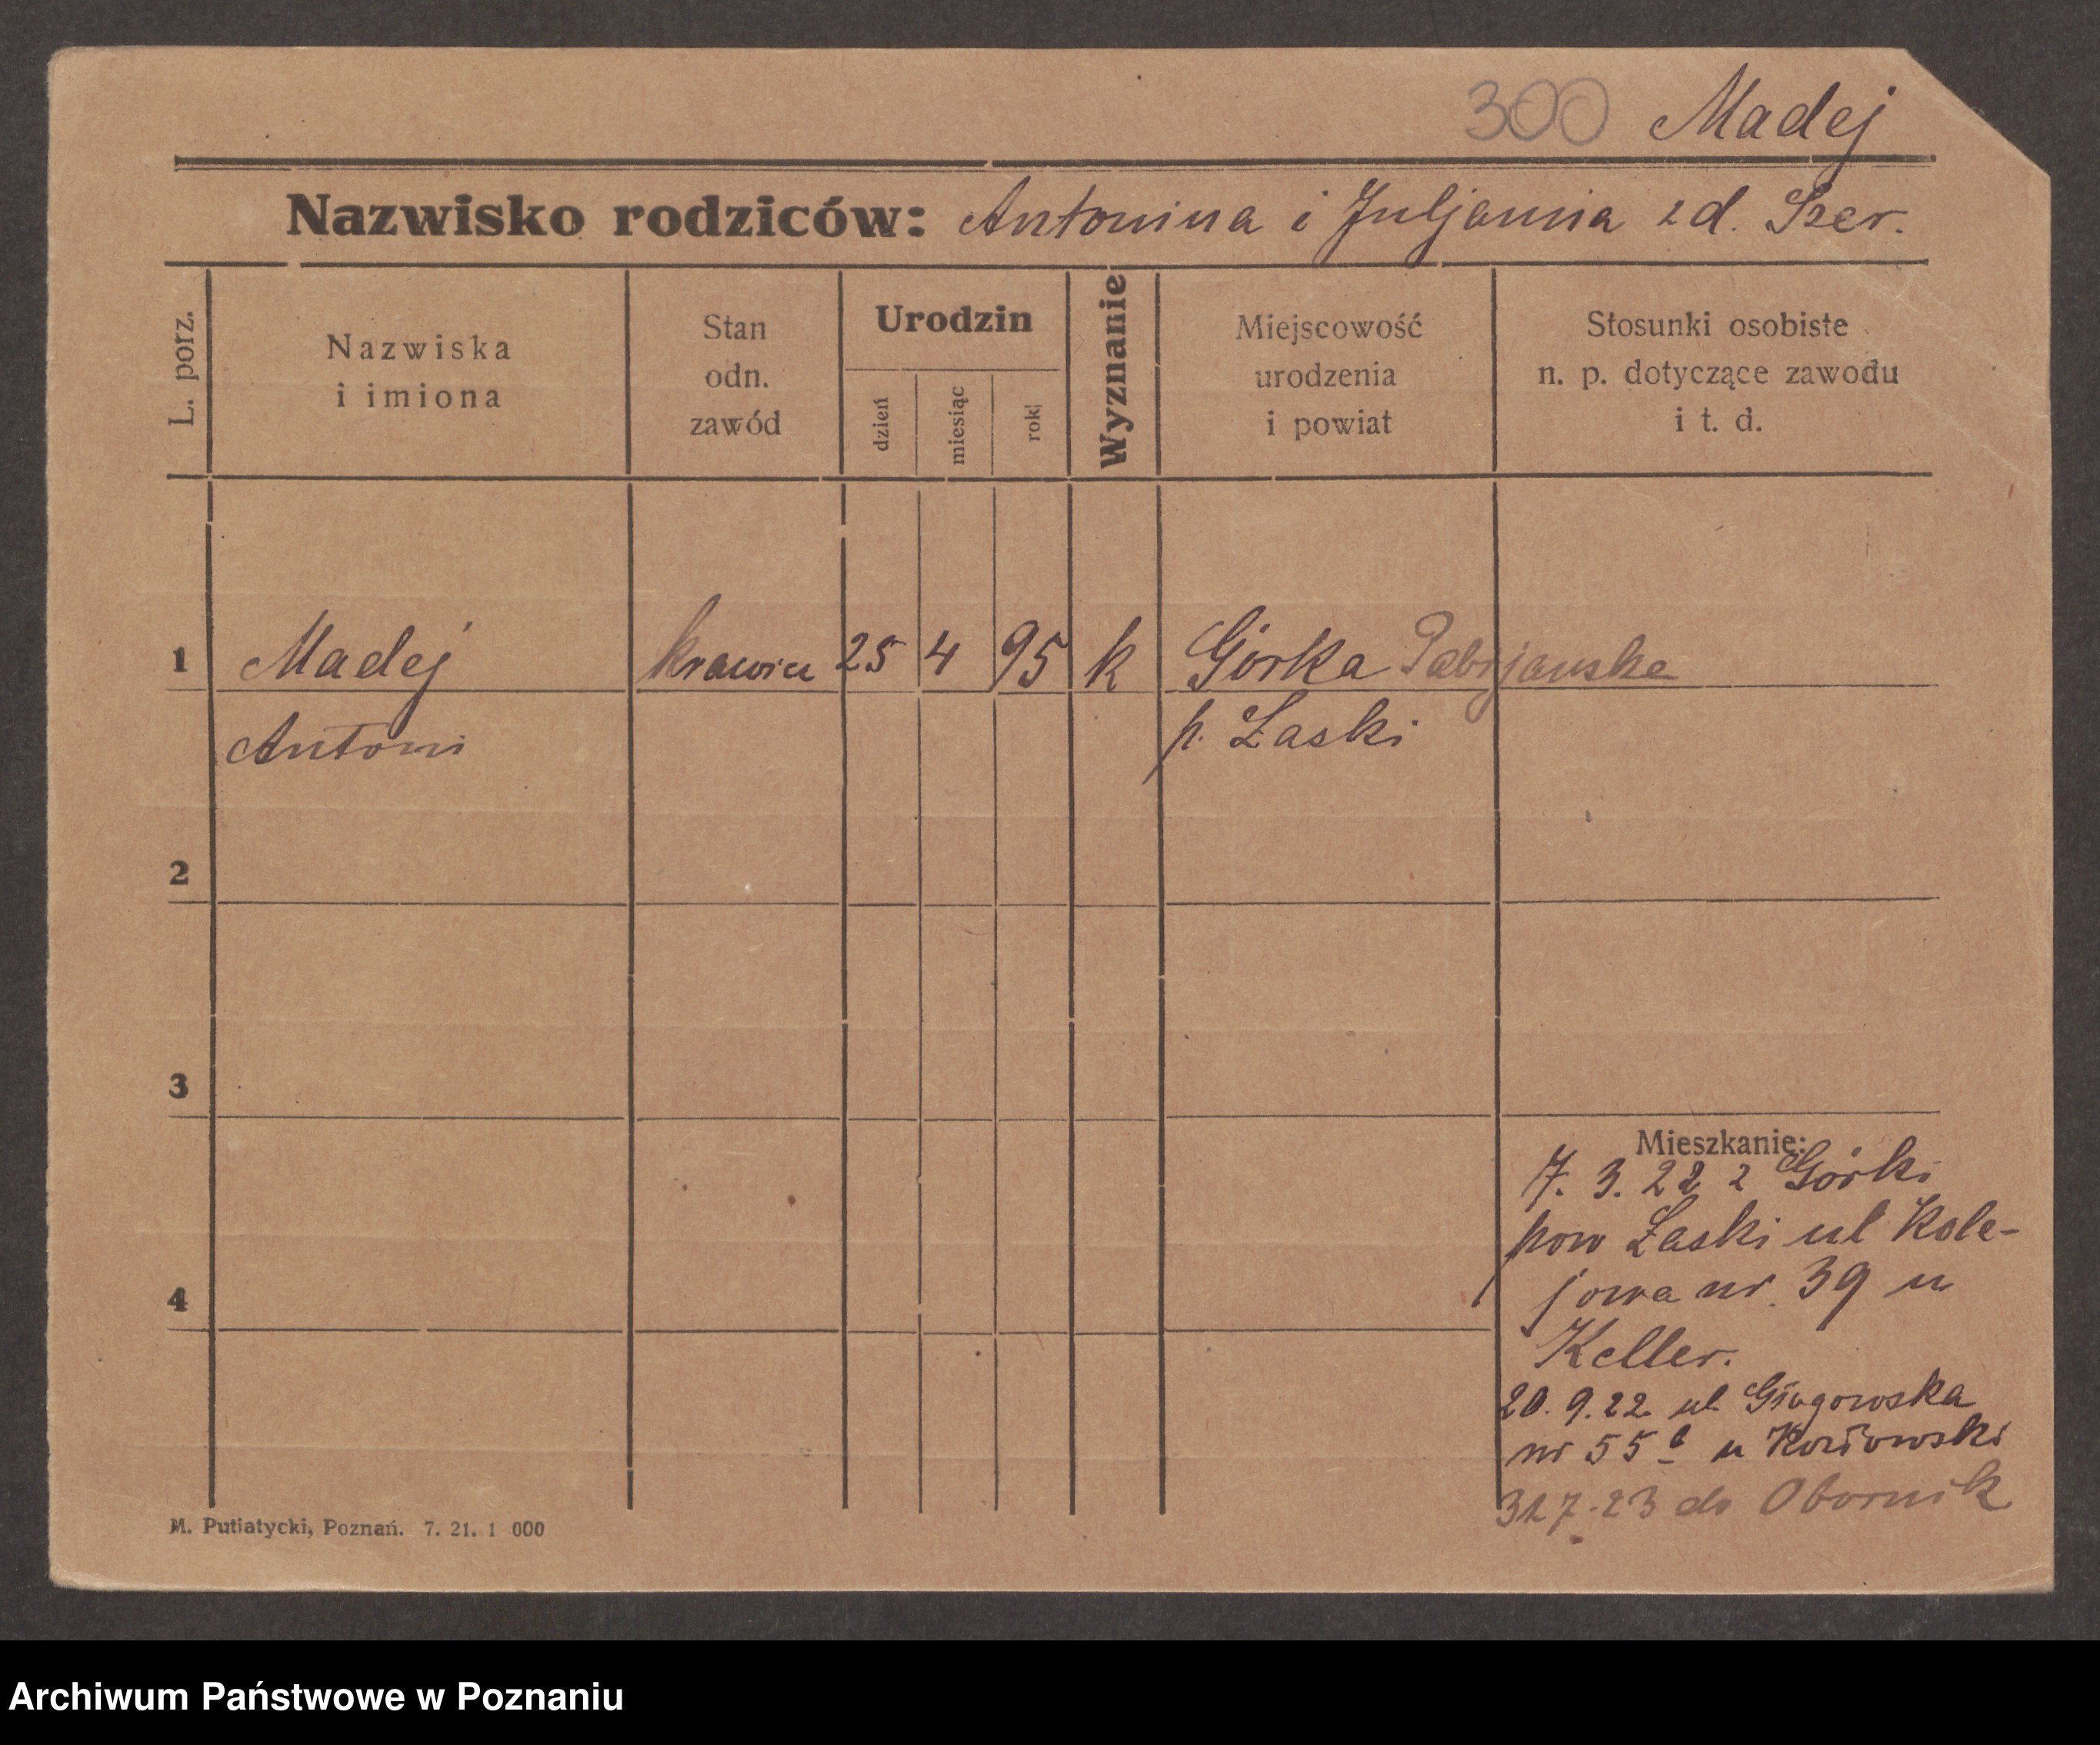 300 Madej
Nazwisko rodziców: Antonina i Juljanna z d. Szer.
L. porz.
Nazwiska
i imiona
Stan
odn.
zawód
Urodzin
dzień
miesiąc
rok
Wyznanie
Miejscowość
urodzenia
i powiat
Stosunki osobiste
n. p. dotyczące zawodu
i t. d.
1 Madej krawiec 25 4 95 k Górka Pabjanska
Antoni p. Łaski
2
3
Mieszkanie:
7. 3. 22 z Górki
pow Łaski ul Kole-
jowa nr. 39 u
4
Keller.
20. 9. 22 ul Głogowska
nr 55 u
31 7. 23 do Obornik
M. Putiatycki, Poznań. 7. 21. 1 000
Archiwum Państwowe w Poznaniu